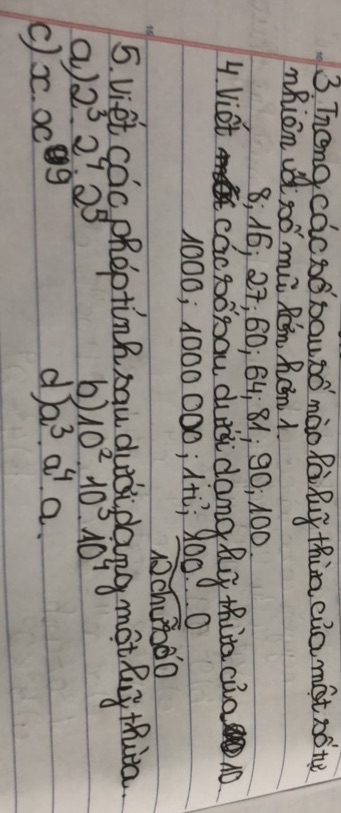 3. Trong các số sau số nào là luỹ thừa của một số tự
nhiên với số mũ lớn hơn 1.
8; 16; 27; 60; 64; 81; 90; 100.
4. Viết các số sau dưới dạng luỹ thừa của 10.
1000; 1000 000; 1 tỉ; 100...0
12 chữ số 0
5. Viết các phép tính sau dưới dạng một luỹ thừa.
a) 2³. 2⁴. 2⁵ b) 10². 10³. 10⁴
c) x. x⁹ d) a³. a⁴. a.